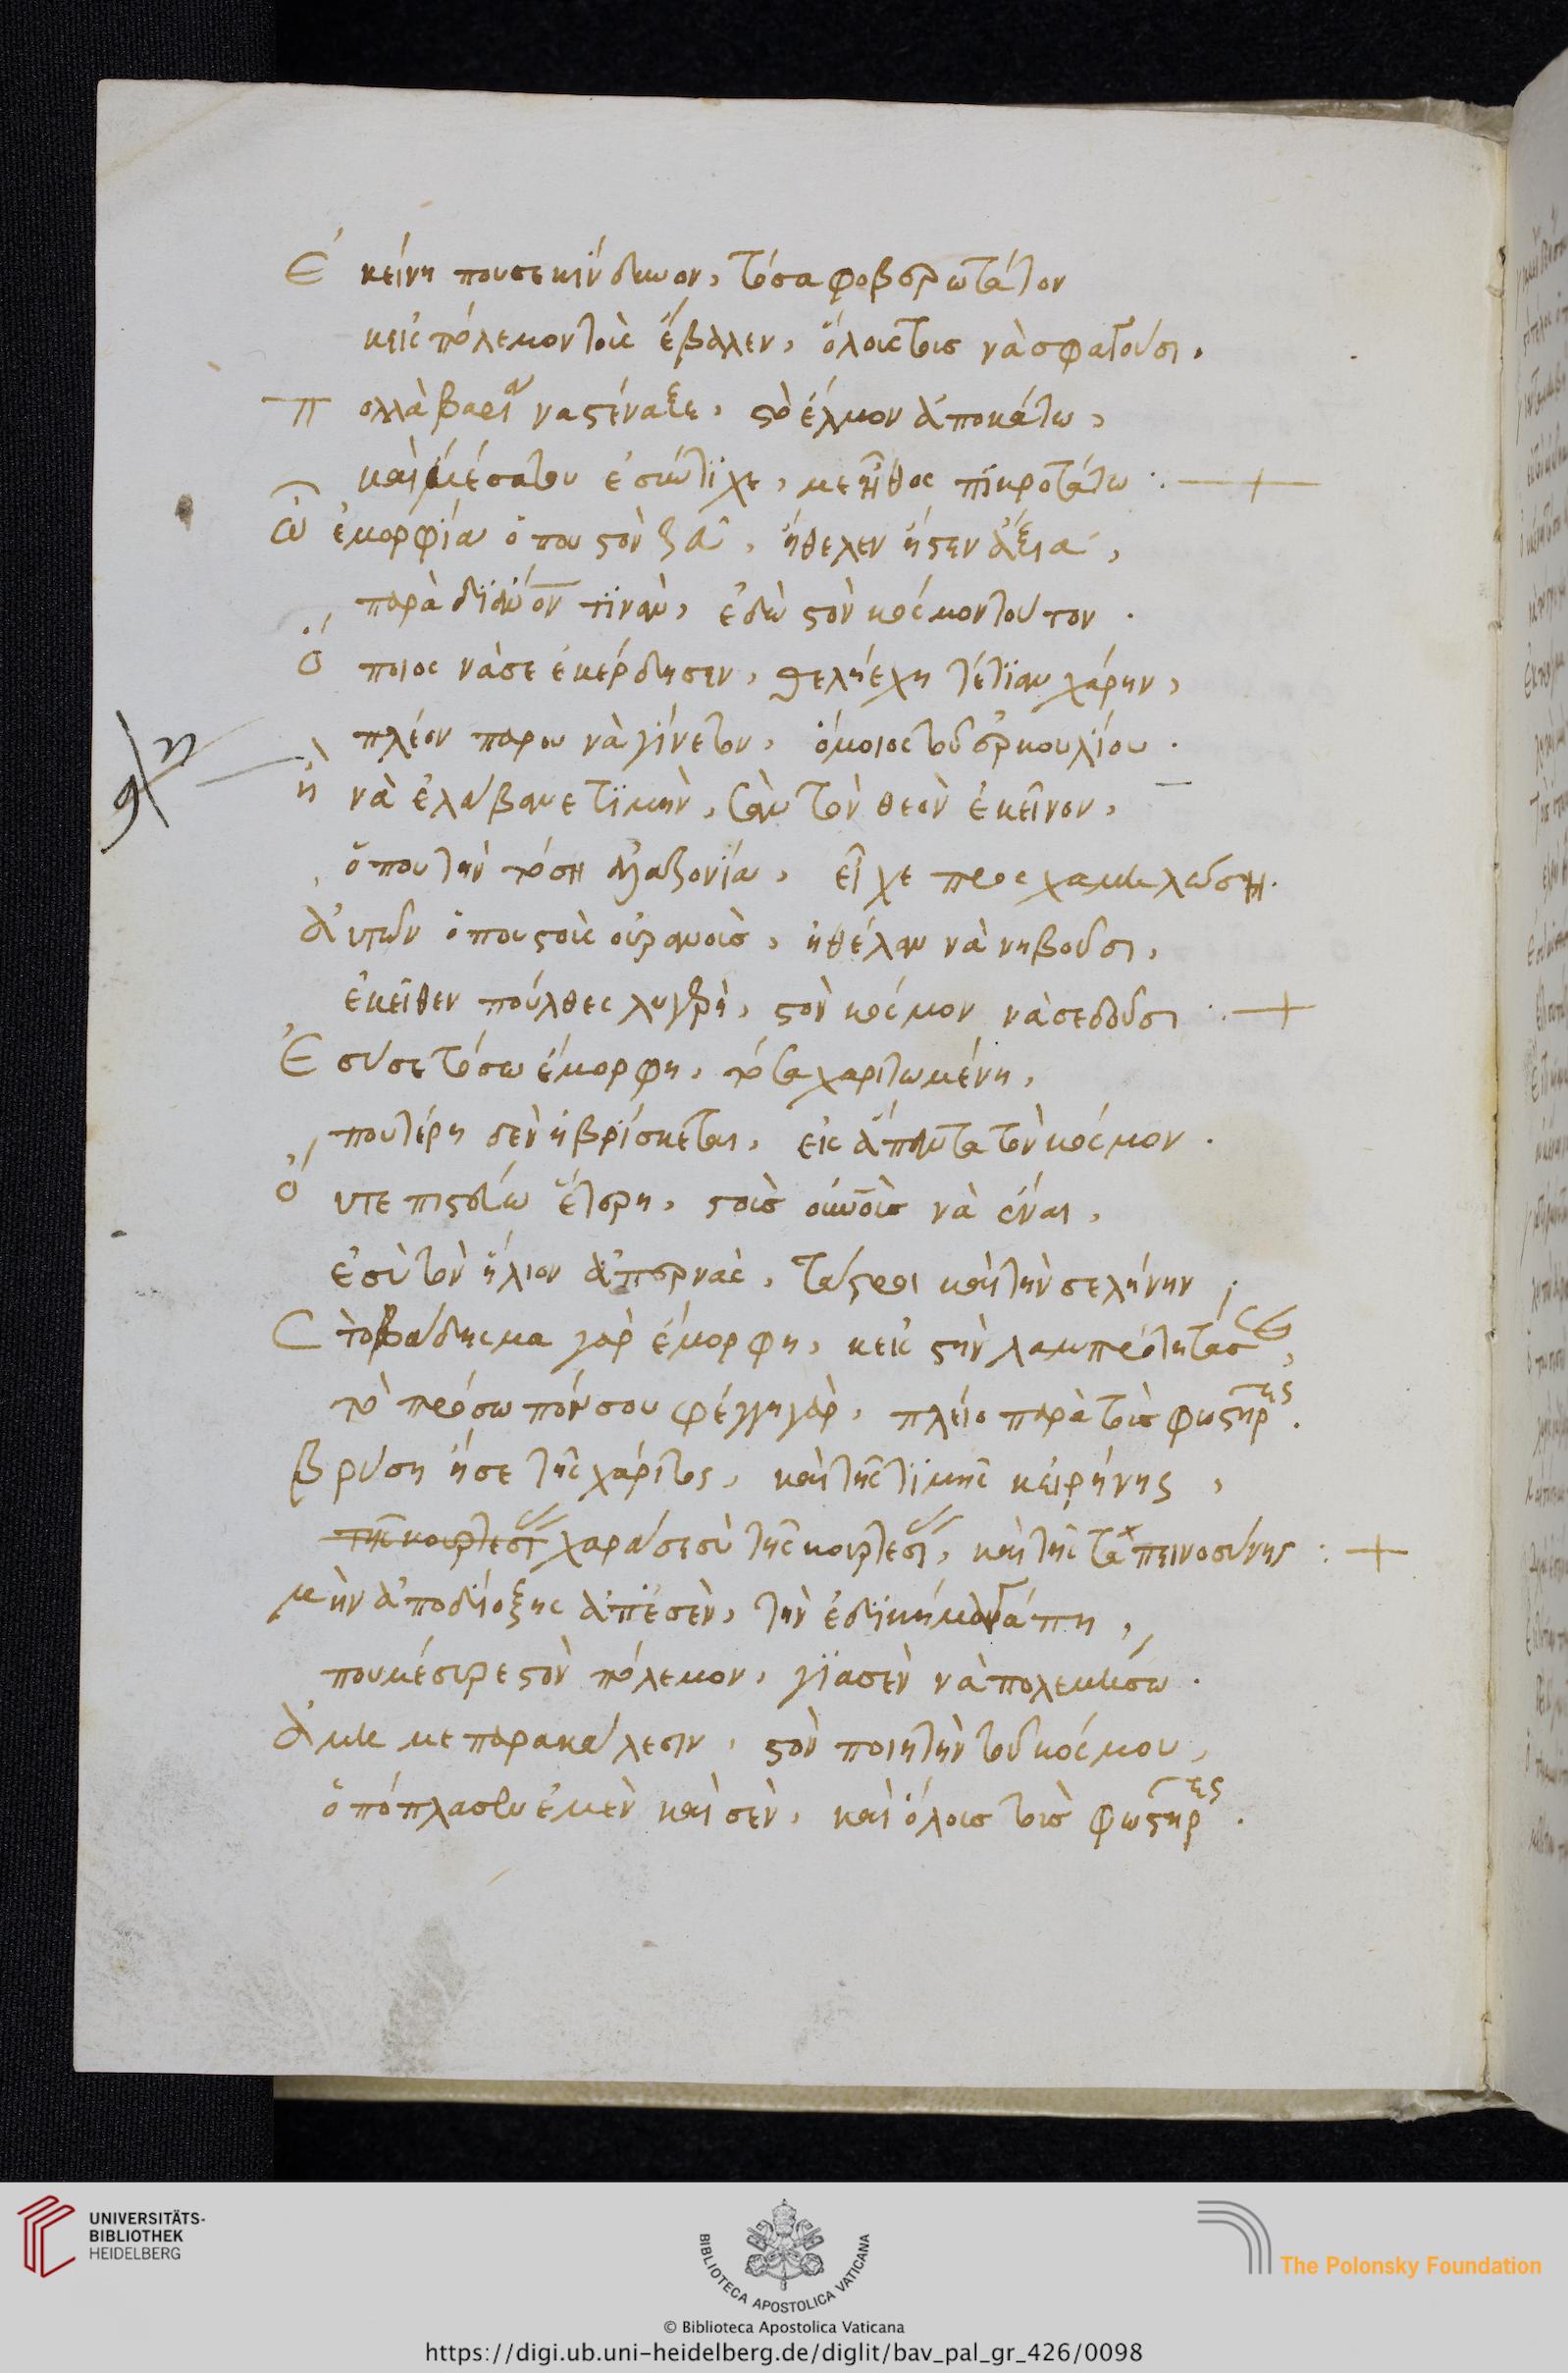 Ἐκείνη που σε κίνδυνον, τόσα φοβερώτατον
κεἰς πόλεμον τοὺς ἔβαλεν, ὅλους τους νὰ σφαγοῦσι,
πολλὰ βαρεὰν ἀστέναξε, στὸ ἕλμον ἀποκάτω,
καὶ μέσα του ἐσύντυχε, με ἦθος πικροτάτω :
Ὢ ἐμορφία ὁπου στὸν ἤθελεν ἤστεν ἄξια,
παρὰ τιναν, ἐδῶ στὸν κόσμον τοῦτον .
ὅποιος νά σε ἐκέρδησεν, θελὴ ἔχη τέτιαν χάρην,
πλέον παρου νὰ γίνετον, ὅμοιος τοῦ ἑρκουλίου .
ἢ νὰ ἐλάβανε τιμὴν, σὰν τὸν θεὸν ἐκεῖνον,
ὅπου τὴν τόση ἀλαζονίαν, εἶχε προς χαμηλώση.
ἀυτῶν ὁπου στοὺς οὐρανοὺς, ἠθέλαν νὰ νηβοῦσι,
ἐκεῖθεν πούλθες λυγερὴ, στὸν κόσμον νὰ σε δοῦσι :
Ἐσύσε τόσω ἔμορφη, τόσα χαριτωμένη,
που τέρη σὲν ἡβρίσκεται, εἰς ἅπαντα τὸν κόσμον .
ὅυτε πιστεύω ἕτερη, στοὺς οὐνοὺς νὰ ἔναι,
ἐσὺ τὸν ἥλιον ἀπερνᾶς, τάστροι καὶ τὴν σελήνην
Στὸ βάδησμα γὰρ ἔμορφη, κεἰς στὴν λαμπρότητά σου,
τὸ πρόσωπόν σου φέγγη γὰρ, πλεῖο παρὰ τοὺς φωστῆρες.
Βρύση ἦσε τῆς χάριτος, καὶ τῆς τιμῆς κεἰρήνης,
τῆς κουρτεσίας χαράσεσὺ τῆς κουρτεσίας, καὶ τῆς ταπεινοσύνης :
μὴν ἀποδιόξης ἀπὲσὲν, τὴν ἐδικήμου ἀγάπη,
που μέσυρε στὸν πόλεμον, γιασὲν νὰ πολεμίσω .
ἀμὶ με παρακάλεσιν, στὸν ποιητὴν τοῦ κόσμου,
ὁπόπλασεν ἐμὲν καὶ σὲν, καὶ ὅλους τοὺς φωστῆρες .
UNIVERSITÄTS-
BIBLIOTHEK
HEIDELBERG
BIBLIOTECA APOSTOLICA VATICANA
The Polonsky Foundation
© Biblioteca Apostolica Vaticana
https://digi.ub.uni-heidelberg.de/diglit/bav_pal_gr_426/0098